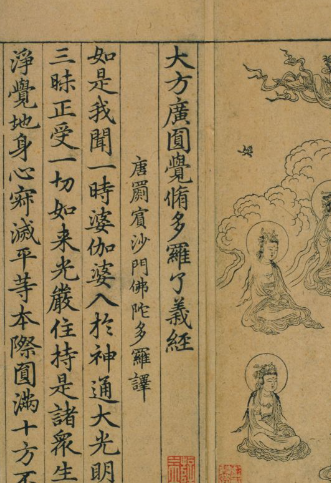 大方廣圓覺脩多羅了義經
唐罽賓沙門佛陀多羅譯
如是我聞一時婆伽婆入於神通大光明
三昧正受一切如来光嚴住持是諸衆生
淨覺地身心寂滅平等本際圓滿十方不